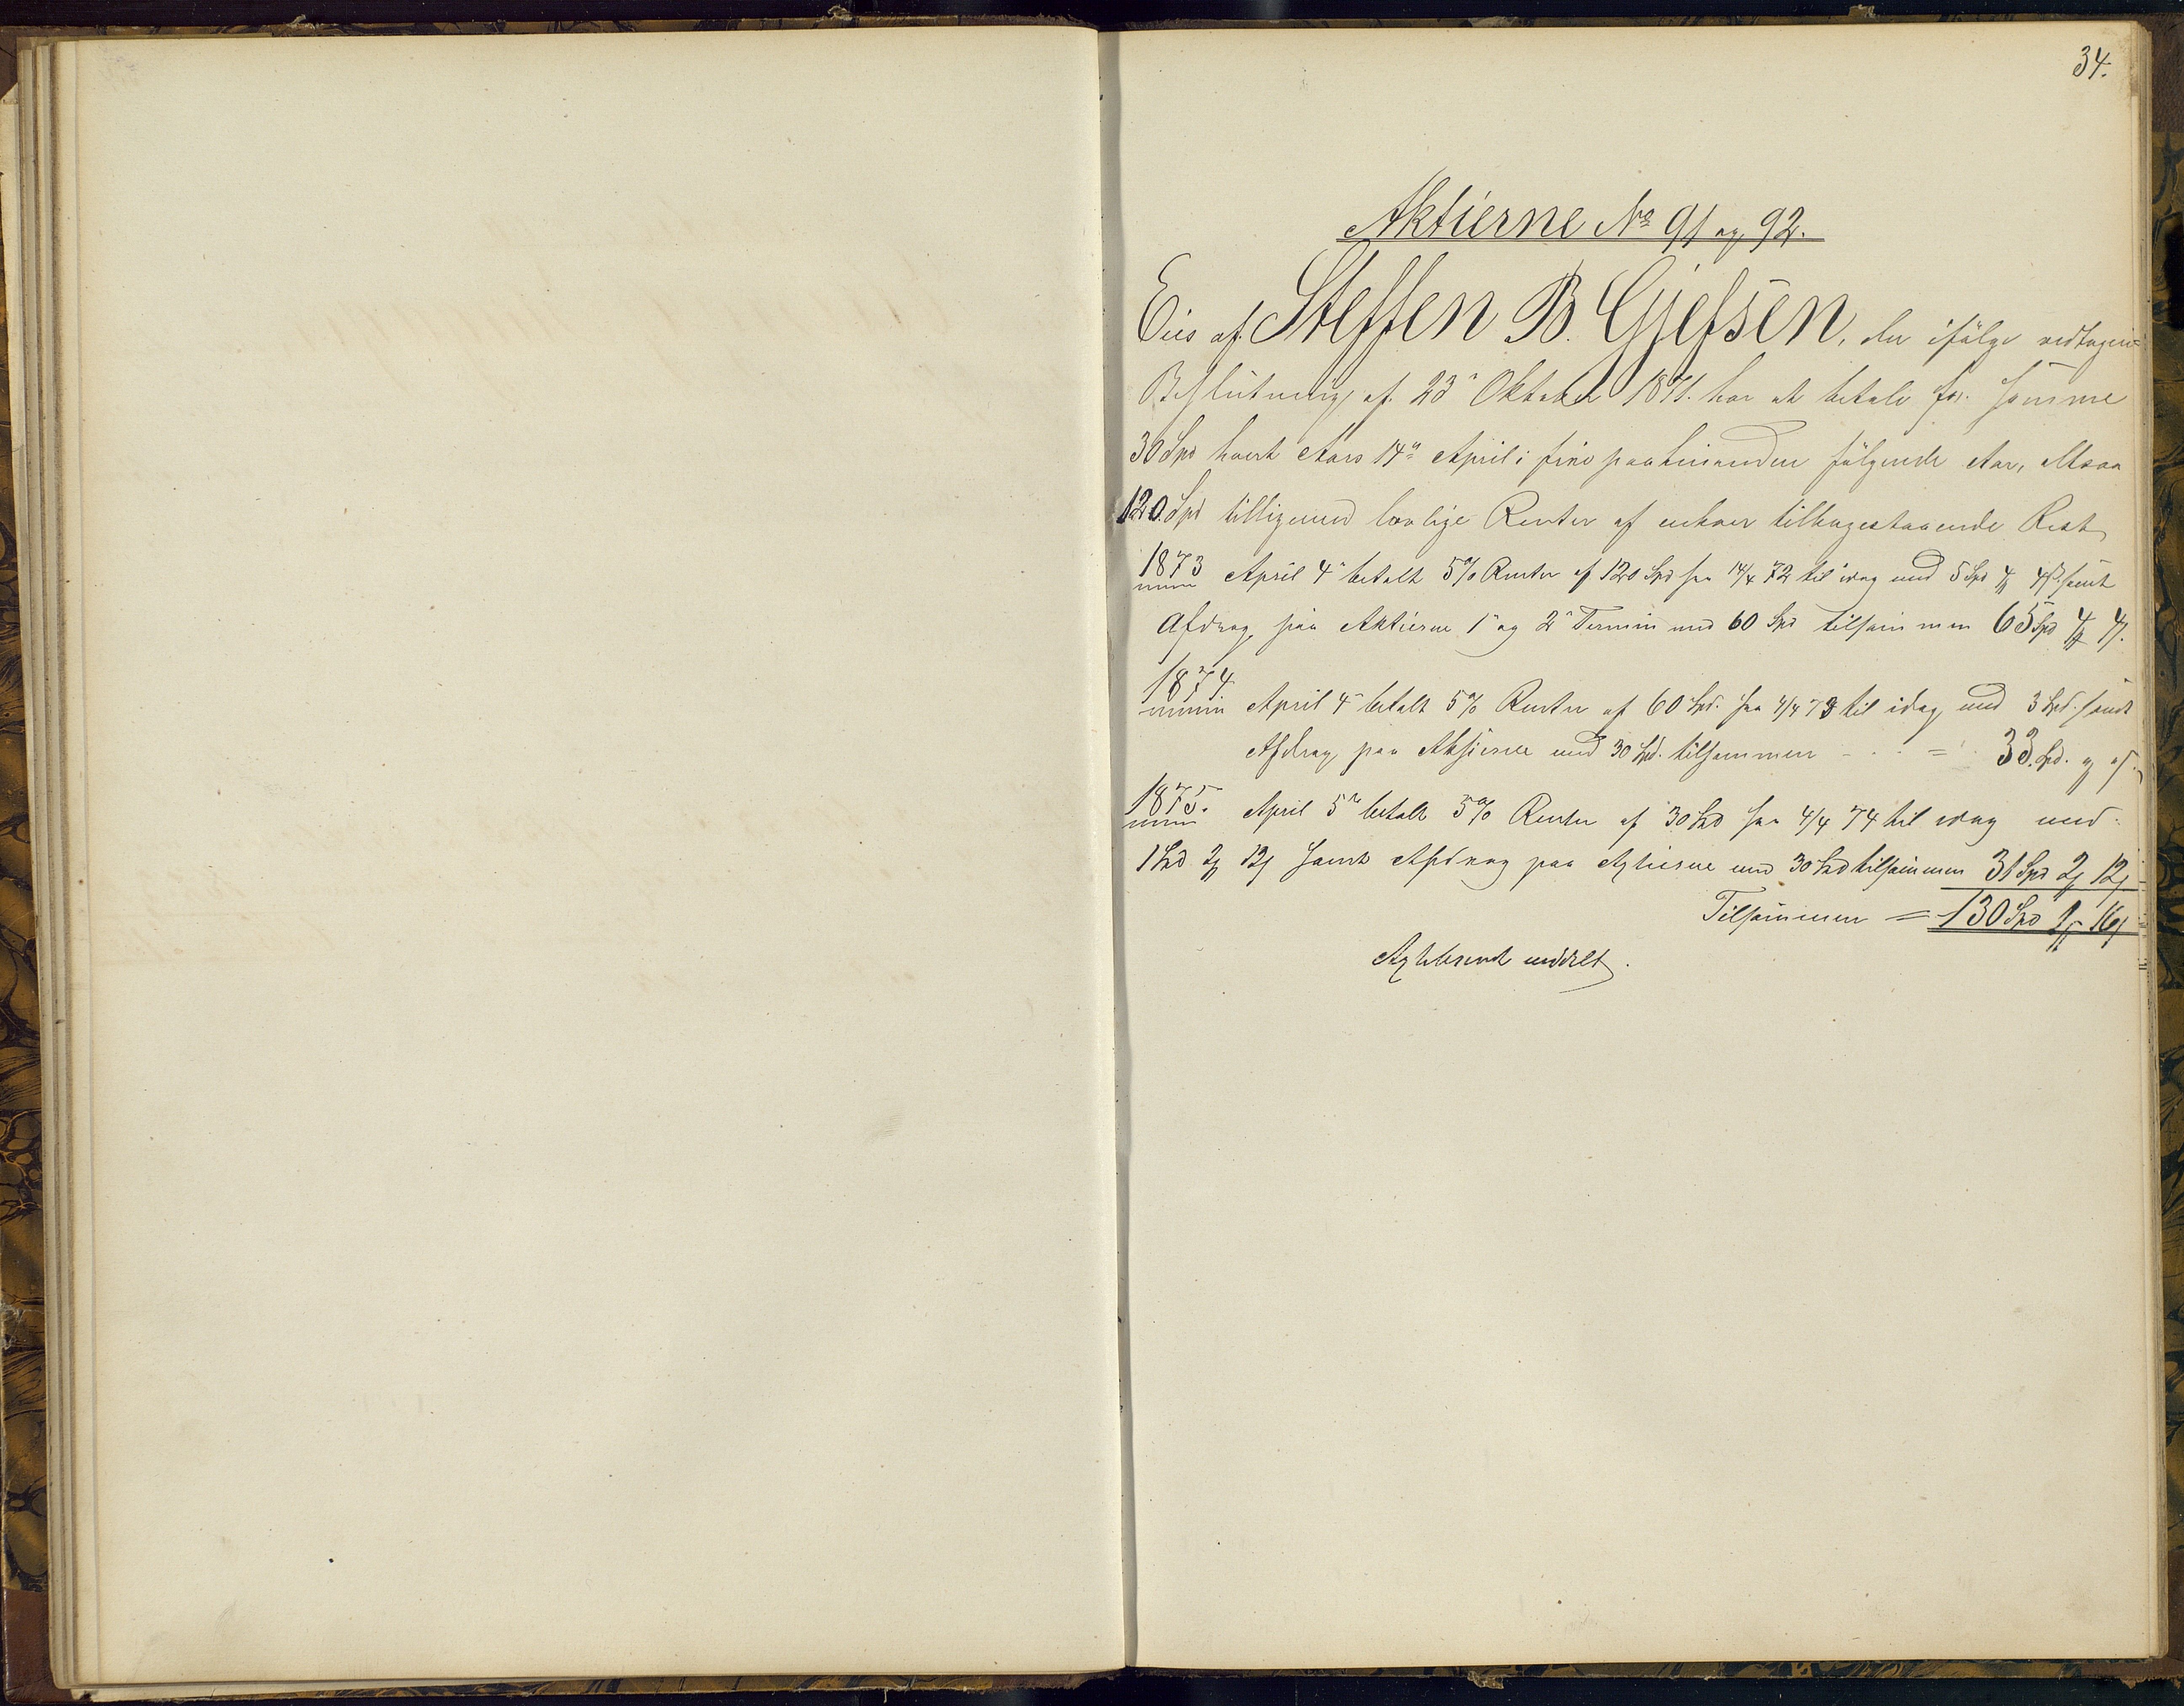 34.
Aktierne No 91 og 92.
Eies af Steffen B. Gjefsen, der ifölge vedtagen
Beslutning af 23d Oktober 1871. har at betale for samme
30 Spd hvert Aars 14de April i fire paahinanden fölgende Aar, altsaa
120. Spd tilligemed lovlige Renter af enhver tilbagestaaende Rest
1873 April 4d betalt 5% Renter af 120 Spd fra 14/4 72 til idag med 5 Spd 4 samt
Afdrag paa Aktierne 1d og 2d Termin med 60 Spd tilsammen 65 Spd 4 4
1874 April 4d betalt 5% Renter af 60 Spd. fra 4/4 73 til idag med 3 Spd. samt
Afdrag paa Aktierne med 30 Spd. tilsammen - - - = 33. Spd.
1875. April 5te betalt 5% Renter af 30 Spd fra 4/4 74 til idag med
1 Spd 2 12 samt Afdrag paa Aktierne med 30 Spd tilsammen 31 Spd 2 12
Tilsammen = 130 Spd 16
meddelt.